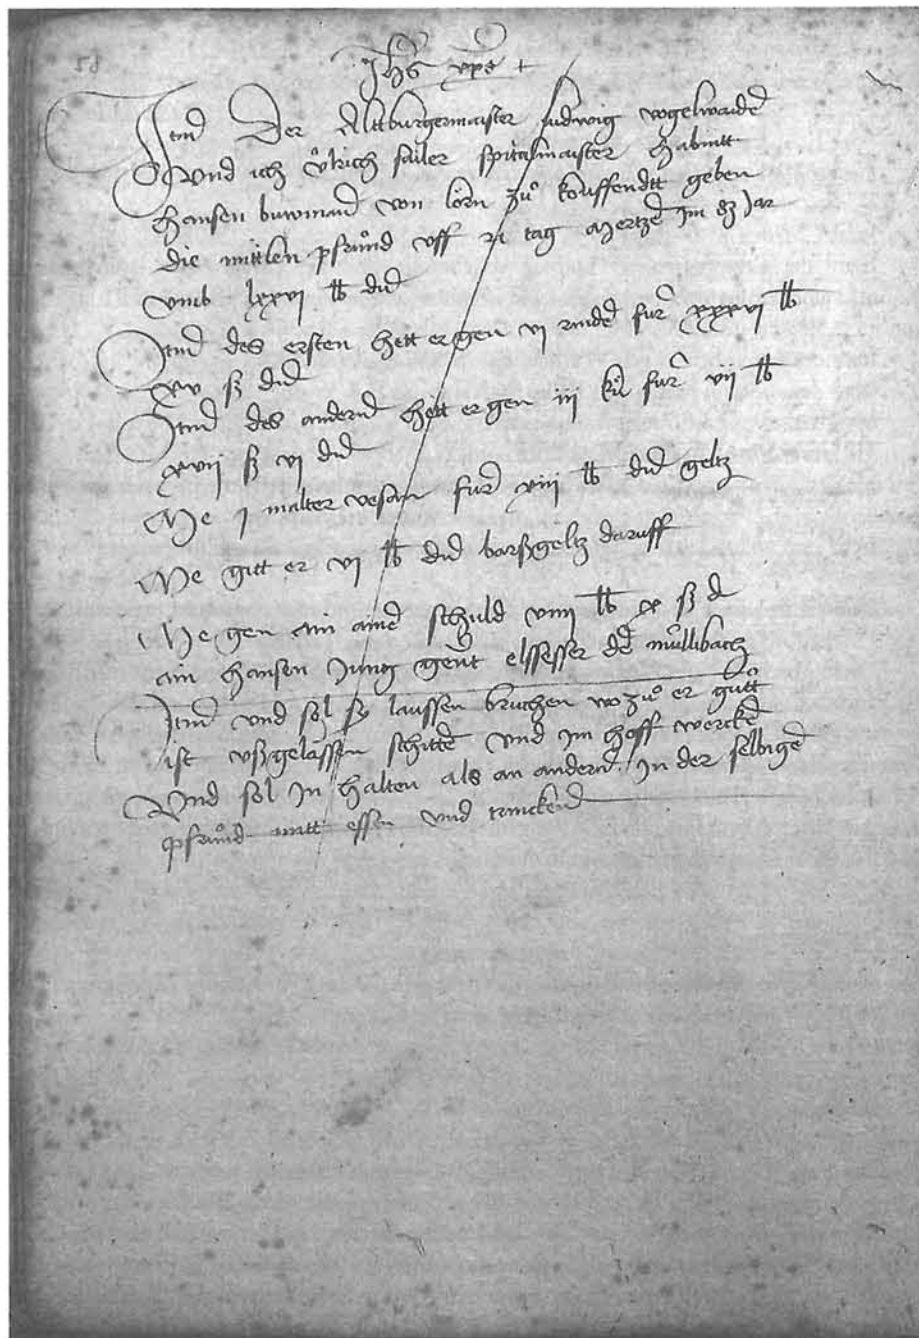 Jhs xps +
Jtm Der Altburgermaister ludwig vogelwaidē
Vnd ich vͦlrich sailer spitalmaister habintt
hansen buwman von lörn zuͦ kouffendtt geben
die mittlen pfruͦnd vff xi tag mertzē jm Jar
vmb lxxvi lb did
Jtm des ersten hett er gen vi rinder fur xxxvi lb
xv ß did
Jtm des andernd hett er gen iii kü fur vii lb
xvii ß vi did
Me j malter vesan fur viii lb did geltz
Me gitt er vi lb did barßgeltz daruff
Me gen ain ainē schuld viiii lb x ß d
ain hansen Jung gent elssesser de müllibach
Jtm vnd sol sy laussen bruchen wo zuͦ er guͦtt
ist vßgelassen schittē vnd jm hoff werckē
Vnd sol jn halten als an andernd jn der selbigē
pfruͦnd mitt essen vnd trinckend